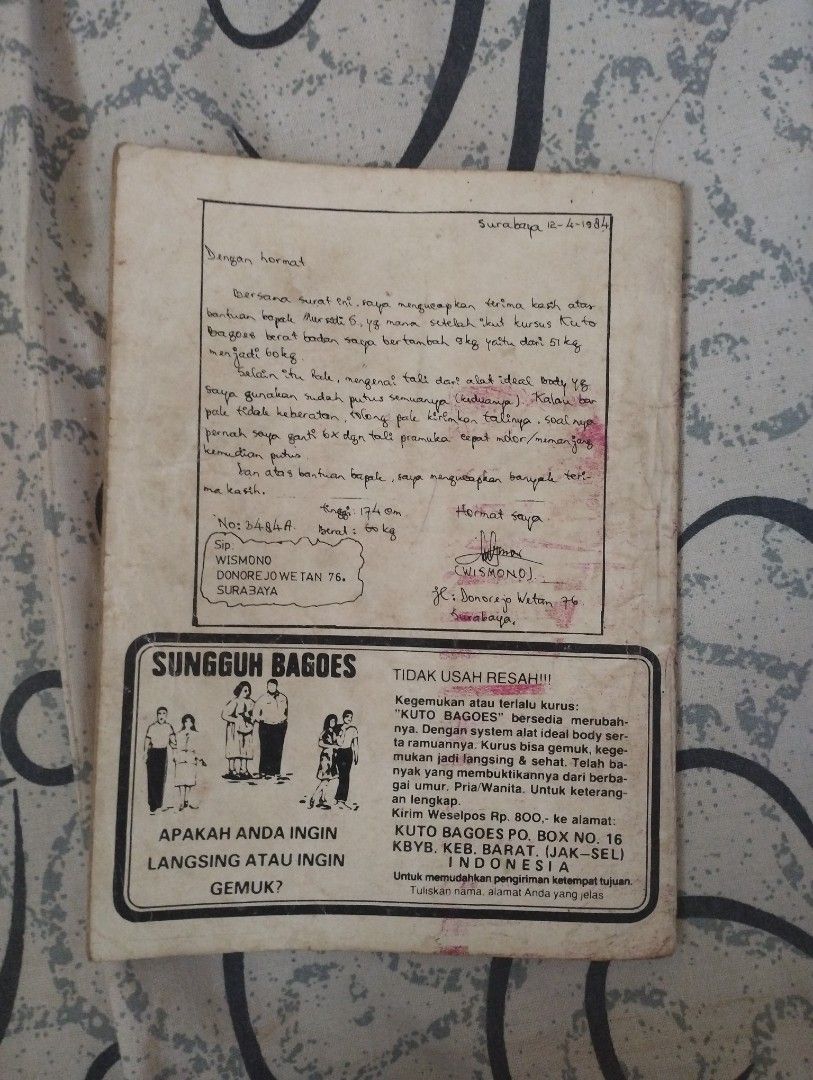 Surabaya 12-4-1984
Dengan hormat
Bersama surat ini, saya mengucapkan terima kasih atas
bantuan bapak Mursidi S, yg mana setelah ikut kursus Kuto
Bagoes berat badan saya bertambah 9kg yaitu dari 51kg
menjadi 60kg.
Selain itu Pak, mengenai tali dari alat ideal Body yg
saya gunakan sudah putus semuanya (keduanya). Kalau ba-
pak tidak keberatan, tolong pak kirimkan talinya, soalnya
pernah saya ganti 6x dgn tali pramuka cepat molor/memanjang
kemudian putus.
Dan atas bantuan bapak, saya mengucapkan banyak teri-
ma kasih.
Tinggi: 174 cm Hormat saya
No: B484A. Berat: 60 kg
Sip:
WISMONO
DONOREJO WETAN 76.
SURABAYA
(WISMONO).
Jl: Donorejo Wetan 76
Surabaya.
SUNGGUH BAGOES
APAKAH ANDA INGIN
LANGSING ATAU INGIN
GEMUK?
TIDAK USAH RESAH!!!
Kegemukan atau terlalu kurus:
"KUTO BAGOES" bersedia merubah-
nya. Dengan system alat ideal body ser-
ta ramuannya. Kurus bisa gemuk, kege-
mukan jadi langsing & sehat. Telah ba-
nyak yang membuktikannya dari berba-
gai umur. Pria/Wanita. Untuk keterang-
an lengkap.
Kirim Weselpos Rp. 800,- ke alamat:
KUTO BAGOES PO. BOX NO. 16
KBYB. KEB. BARAT. (JAK-SEL)
INDONESIA
Untuk memudahkan pengiriman ketempat tujuan.
Tuliskan nama, alamat Anda yang jelas